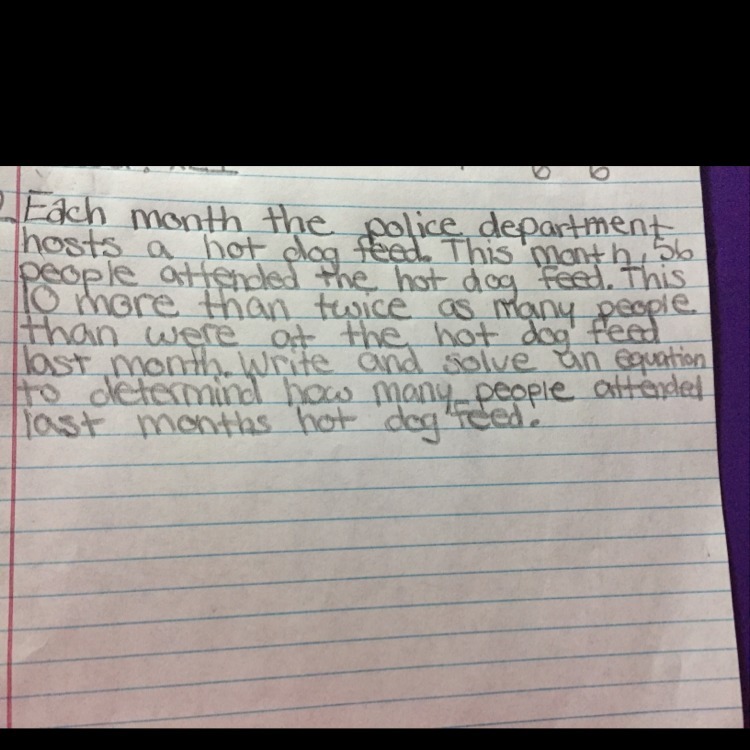 Each month the police department
hosts a hot dog feed. This month, 56
people attended the hot dog feed. This
10 more than twice as many people
than were at the hot dog feed
last month. Write and solve an equation
to determind how many people attended
last months hot dog feed.